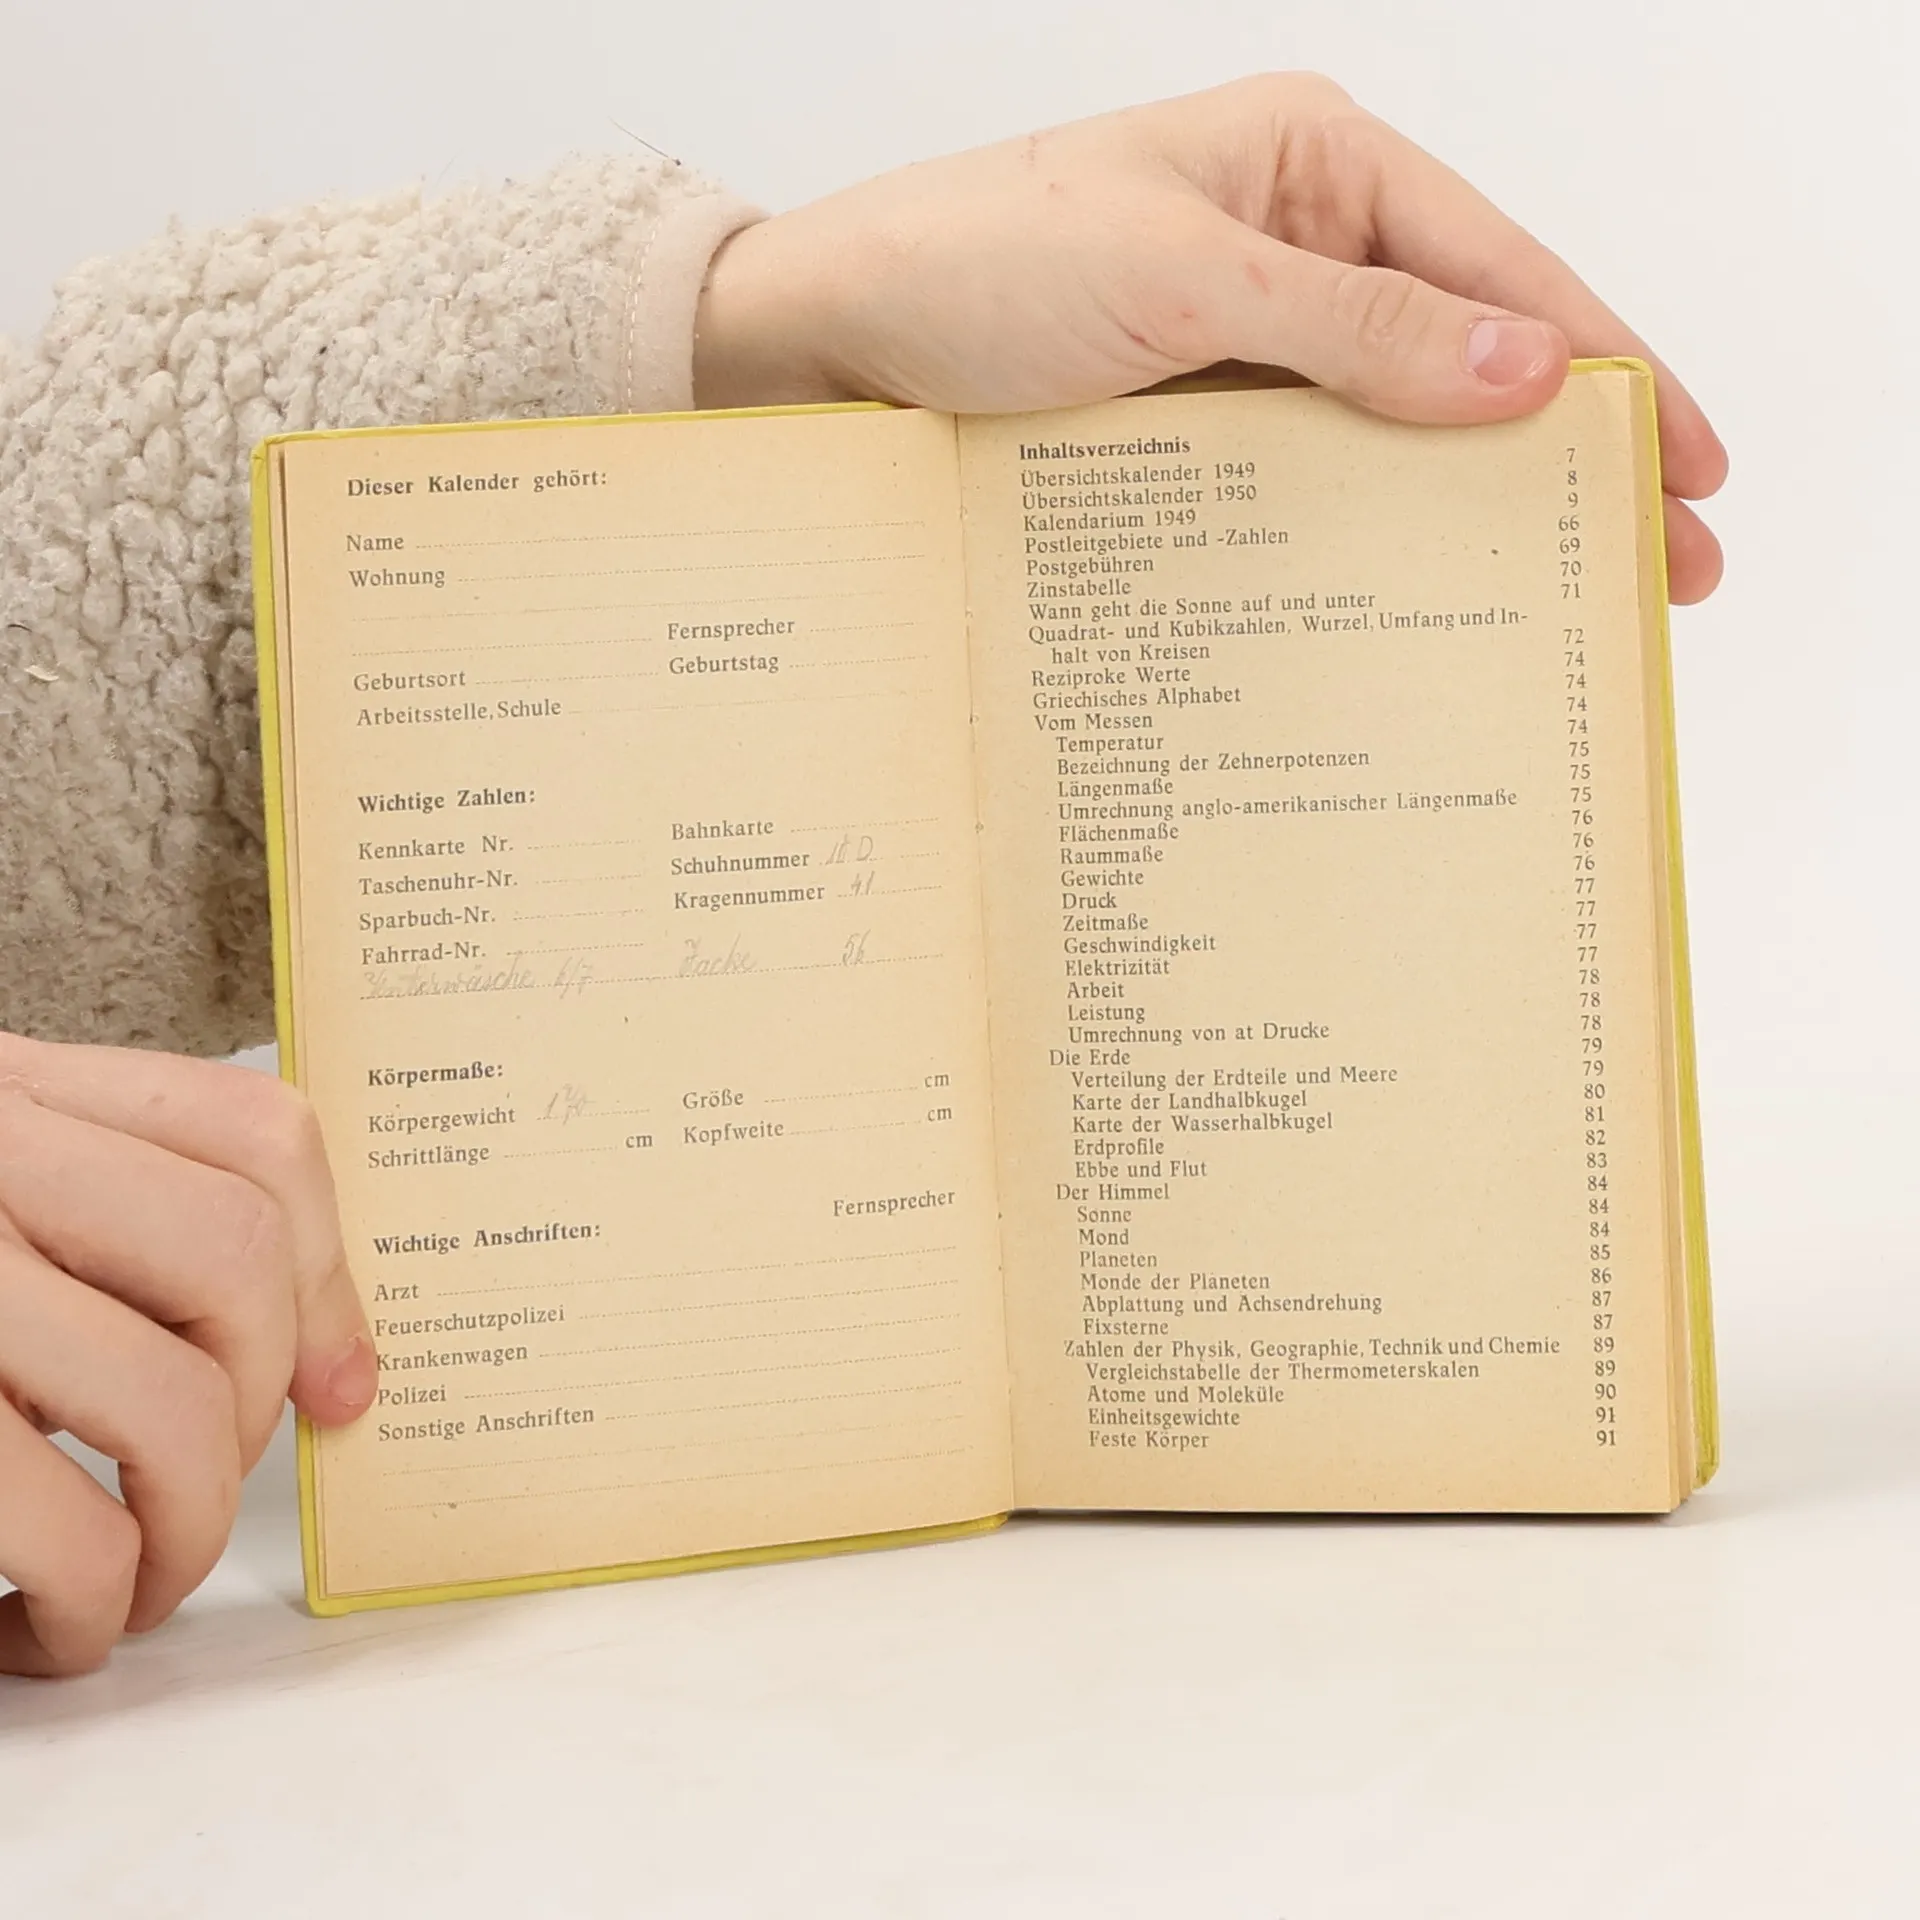 Dieser Kalender gehört:
Name
Wohnung
Fernsprecher
Geburtsort Geburtstag
Arbeitsstelle, Schule
Wichtige Zahlen:
Kennkarte Nr. Bahnkarte
Taschenuhr-Nr. Schuhnummer
Sparbuch-Nr. Kragennummer 41
Fahrrad-Nr.
Unterwäsche 6/7 Jacke 56
Körpermaße:
Körpergewicht 170 Größe cm
Schrittlänge cm Kopfweite cm
Fernsprecher
Wichtige Anschriften:
Arzt
Feuerschutzpolizei
Krankenwagen
Polizei
Sonstige Anschriften
Inhaltsverzeichnis
Übersichtskalender 1949 7
Übersichtskalender 1950 8
Kalendarium 1949 9
Postleitgebiete und -Zahlen 66
Postgebühren 69
Zinstabelle 70
Wann geht die Sonne auf und unter 71
Quadrat- und Kubikzahlen, Wurzel, Umfang und In-
halt von Kreisen 72
Reziproke Werte 74
Griechisches Alphabet 74
Vom Messen 74
Temperatur 74
Bezeichnung der Zehnerpotenzen 75
Längenmaße 75
Umrechnung anglo-amerikanischer Längenmaße 75
Flächenmaße 76
Raummaße 76
Gewichte 76
Druck 77
Zeitmaße 77
Geschwindigkeit 77
Elektrizität 77
Arbeit 78
Leistung 78
Umrechnung von at Drucke 78
Die Erde 79
Verteilung der Erdteile und Meere 79
Karte der Landhalbkugel 80
Karte der Wasserhalbkugel 81
Erdprofile 82
Ebbe und Flut 83
Der Himmel 84
Sonne 84
Mond 84
Planeten 85
Monde der Planeten 86
Abplattung und Achsendrehung 87
Fixsterne 87
Zahlen der Physik, Geographie, Technik und Chemie 89
Vergleichstabelle der Thermometerskalen 89
Atome und Moleküle 90
Einheitsgewichte 91
Feste Körper 91